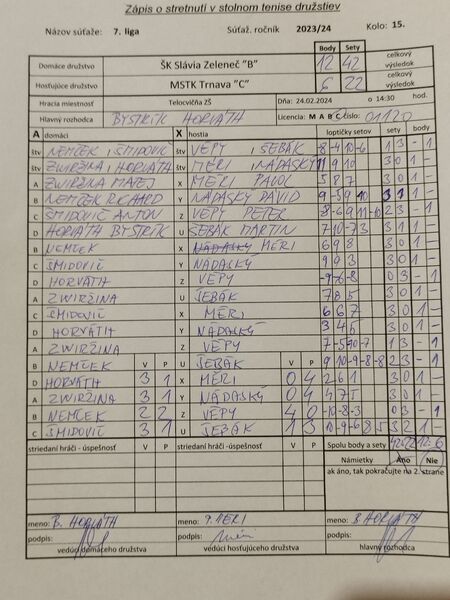 Zápis o stretnutí v stolnom tenise družstiev
Názov súťaže: 7. liga Súťaž. ročník 2023/24 Kolo: 15.
Body Sety celkový výsledok
Domáce družstvo ŠK Slávia Zeleneč "B" 12 42
Hosťujúce družstvo MSTK Trnava "C" 6 22 celkový výsledok
Hracia miestnosť Telocvičňa ZŠ Dňa: 24.02.2024 o 14:30 hod.
Hlavný rozhodca BYSTRÍK HORVÁTH Licencia M A B C číslo: 01120
A domáci X hostia loptičky setov sety body
štv NEMČEK, ŠMIDOVIČ štv VEPY, ŠEBÁK 8 -4 -10 -6 1 3 - 1
štv ZWIRŽINA, HORVÁTH štv MÉRI, NÁDASKÝ 11 9 10 3 0 1 -
A ZWIRŽINA MATEJ X MÉRI PAVOL 5 8 7 3 0 1 -
B NEMČEK RICHARD Y NÁDASKÝ DÁVID 3 1 1 -
C ŠMIDOVIČ ANTON Z VEPY PETER 2 3 - 1
D HORVÁTH BYSTRÍK U ŠEBÁK MARTIN 7 10 -7 3 3 1 1 -
B NEMČEK X MÉRI 6 9 8 3 0 1 -
C ŠMIDOVIČ Y NÁDASKÝ 9 9 3 3 0 1 -
D HORVÁTH Z VEPY -9 -6 -8 0 3 - 1
A ZWIRŽINA U ŠEBÁK 7 8 5 3 0 1 -
C ŠMIDOVIČ X MÉRI 6 6 7 3 0 1 -
D HORVÁTH Y NÁDASKÝ 3 4 5 3 0 1 -
A ZWIRŽINA Z VEPY 1 3 - 1
B NEMČEK V P U ŠEBÁK V P 9 10 -9 -8 -8 2 3 - 1
D HORVÁTH 3 1 X MÉRI 0 4 2 6 1 3 0 1 -
A ZWIRŽINA 3 1 Y NÁDASKÝ 0 4 4 7 5 3 0 1 -
B NEMČEK 2 2 Z VEPY 4 0 -10 -8 -3 0 3 - 1
C ŠMIDOVIČ 3 1 U ŠEBÁK 1 3 3 0 1 -
striedaní hráči - úspešnosť V P striedaní hráči - úspešnosť V P Spolu body a sety 42:22 12:6
Námietky Áno Nie
ak áno, tak pokračujte na 2. strane
meno: B. HORVÁTH meno: P. MÉRI meno: B HORVÁTH
podpis: podpis: podpis:
vedúci domáceho družstva vedúci hosťujúceho družstva hlavný rozhodca